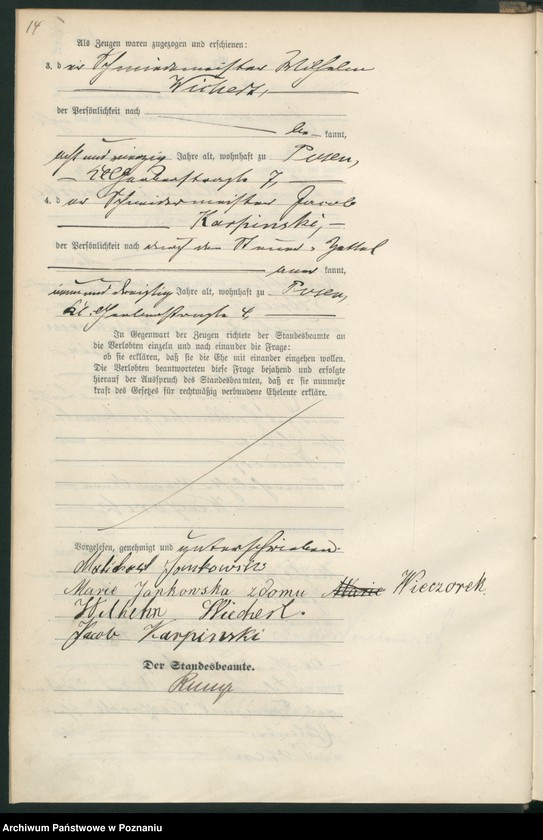 14
Als Zeugen waren zugezogen und erschienen:
3. der Schmiedemeister Wilhelm
Wichert,
der Persönlichkeit nach
be kannt,
acht und vierzig Jahre alt, wohnhaft zu Posen,
7,
4. der Schneidermeister Jacob
Karpinski,
der Persönlichkeit nach durch den Steuer-Zettel
aner kannt,
neun und dreißig Jahre alt, wohnhaft zu Posen,
Kl. Gerberstraße 4,
In Gegenwart der Zeugen richtete der Standesbeamte an
die Verlobten einzeln und nach einander die Frage:
ob sie erklären, daß sie die Ehe mit einander eingehen wollen.
Die Verlobten beantworteten diese Frage bejahend und erfolgte
hierauf der Ausspruch des Standesbeamten, daß er sie nunmehr
kraft des Gesetzes für rechtmäßig verbundene Eheleute erkläre.
Vorgelesen, genehmigt und unterschrieben.
Jankowski
Marie Jankowska zdomu Marie Wieczorek.
Wilhelm Wichert.
Jacob Karpinski
Der Standesbeamte.
Archiwum Państwowe w Poznaniu